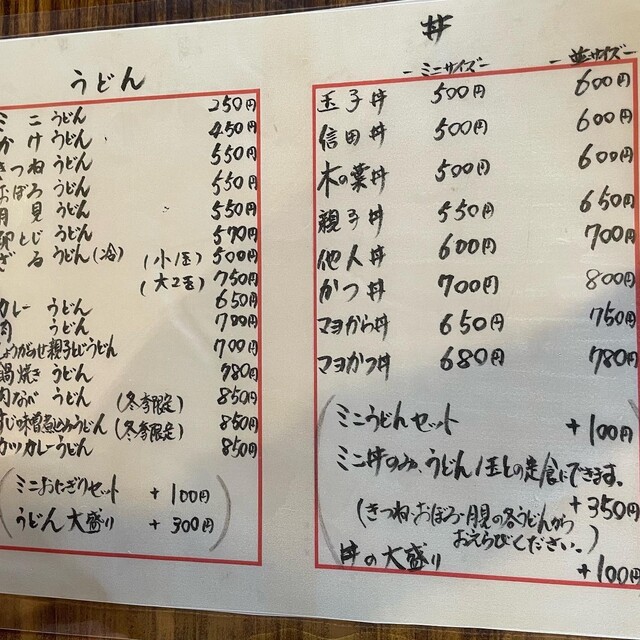 うどん
ミニうどん 250円
かけうどん 450円
きつねうどん 550円
おぼろうどん 550円
月見うどん 550円
卵とじうどん 570円
ざるうどん(冷) (小1玉) 500円
(大2玉) 750円
カレーうどん 650円
肉うどん 700円
しょうがあんかけ親子とじうどん 700円
鍋焼きうどん 780円
肉なべうどん (冬季限定) 850円
すじ味噌煮込みうどん (冬季限定) 850円
カツカレーうどん 850円
ミニおにぎりセット +100円
うどん大盛り +300円
丼
-ミニサイズ- -並サイズ-
玉子丼 500円 600円
信田丼 500円 600円
木の葉丼 500円 600円
親子丼 550円 650円
他人丼 600円 700円
かつ丼 700円 800円
マヨから丼 650円 750円
マヨかつ丼 680円 780円
ミニうどんセット +100円
ミニ丼のみ、うどん1玉との定食にできます。
+350円
(きつね・おぼろ・月見の各うどんから
おえらびください。)
丼の大盛り +100円